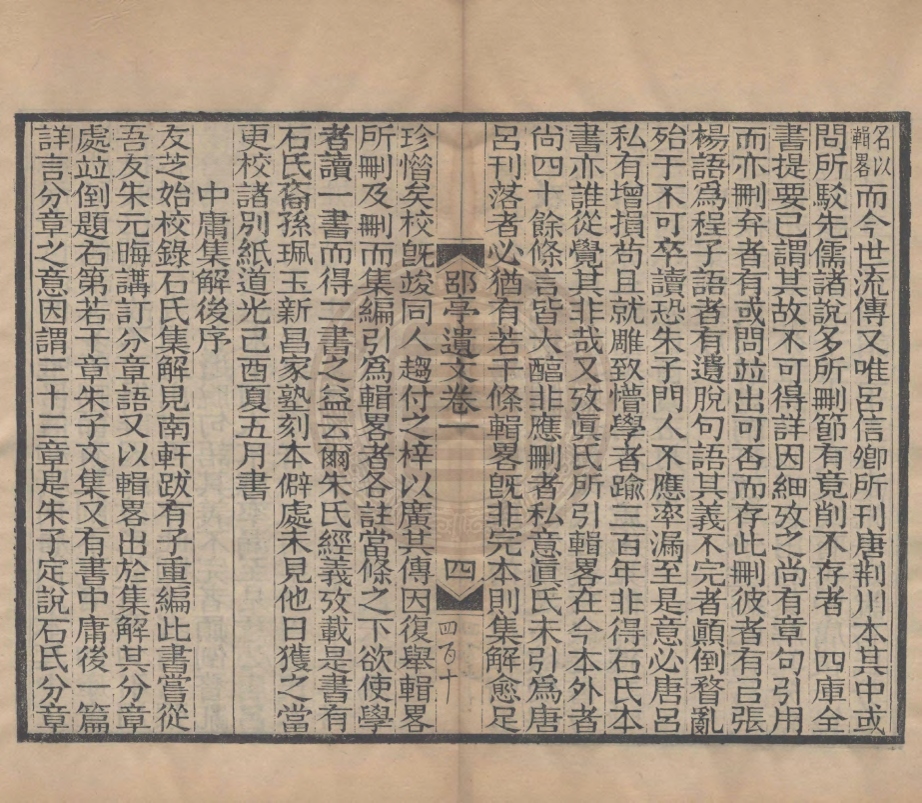 名以輯畧而今世流傳又唯呂信卿所刊唐荆川本其中或
問所駁先儒諸說多所刪節有竟削不存者 四庫全
書提要已謂其故不可得詳因細攷之尚有章句引用
而亦刪弃者有或問並出可否而存此刪彼者有㠯張
楊語爲程子語者有遺脫句語其義不完者顚倒瞀亂
殆于不可卒讀恐朱子門人不應率漏至是意必唐呂
私有增損苟且就雕致懵學者踰三百年非得石氏本
書亦誰從覺其非哉又攷眞氏所引輯畧在今本外者
尙四十餘條言皆大醕非應刪者私意眞氏未引爲唐
呂刊落者必猶有若干條輯畧旣非完本則集解愈足
郘亭遺文卷一 四 四百十
珍惜矣校旣竣同人趨付之梓以廣其傳因復舉輯畧
所刪及刪而集編引爲輯畧者各註當條之下欲使學
者讀一書而得二書之益云爾朱氏經義攷載是書有
石氏裔孫珮玉新昌家塾刻本僻處未見他日獲之當
更校諸別紙道光己酉夏五月書
中庸集解後序
友芝始校錄石氏集解見南軒跋有子重編此書嘗從
吾友朱元晦講訂分章語又以輯畧出於集解其分章
處竝倒題右第若干章朱子文集又有書中庸後一篇
詳言分章之意因謂三十三章是朱子定說石氏分章